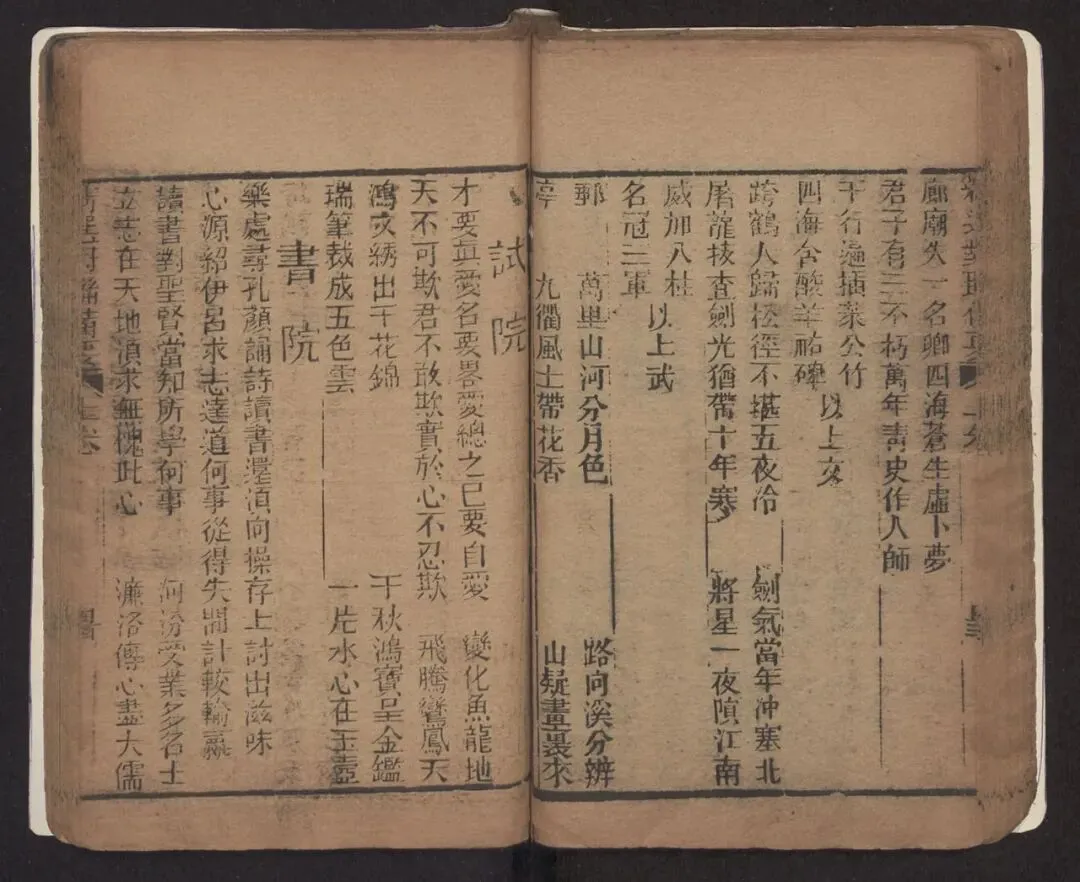 廊廟失一名卿四海蒼生虛卜夢
君子有三不朽萬年青史作人師
千行遍插萊公竹
四海含酸羊祜碑
以上文
跨鶴人歸松徑不堪五夜冷 劍氣當年冲塞北
屠龍技查劍光猶帶十年寒 將星一夜隕江南
威加八柱
名冠三軍
以上武
郵 萬里山河分月色 路向溪分辨
亭 九衢風土帶花香 山疑畫裏來
試院
才要真愛名要畧愛總之已要自愛 變化魚龍地
天不可欺君不敢欺實於心不忍欺 飛騰鸞鳳天
鴻文綉出千花錦 千秋鴻寶呈金鑑
瑞筆裁成五色雲 一片水心在玉壺
書院
樂處尋孔顏誦詩讀書還須向操存上討出滋味
心源紹伊呂求志達道何事從得失間計較輸贏
讀書對聖賢當知所學何事 河汾受業多名士
立志在天地須求無愧此心 濂洛傳心盡大儒